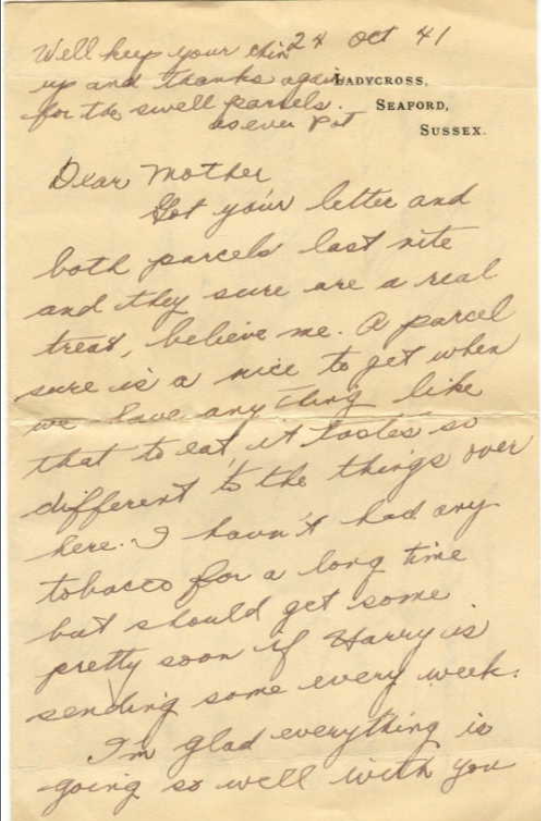 24 Oct 41
Well keep your chin
up and thanks again
for the swell parcels.
as ever Pat
LADYCROSS,
SEAFORD,
SUSSEX.
Dear Mother
Got your letter and
both parcels last nite
and they sure are a real
treat, believe me. A parcel
sure is a nice to get when
we have any thing like
that to eat, it tastes so
different to the things over
here. I havn't had any
tobacco for a long time
but should get some
pretty soon if Harry is
sending some every week.
I'm glad everything is
going so well with you